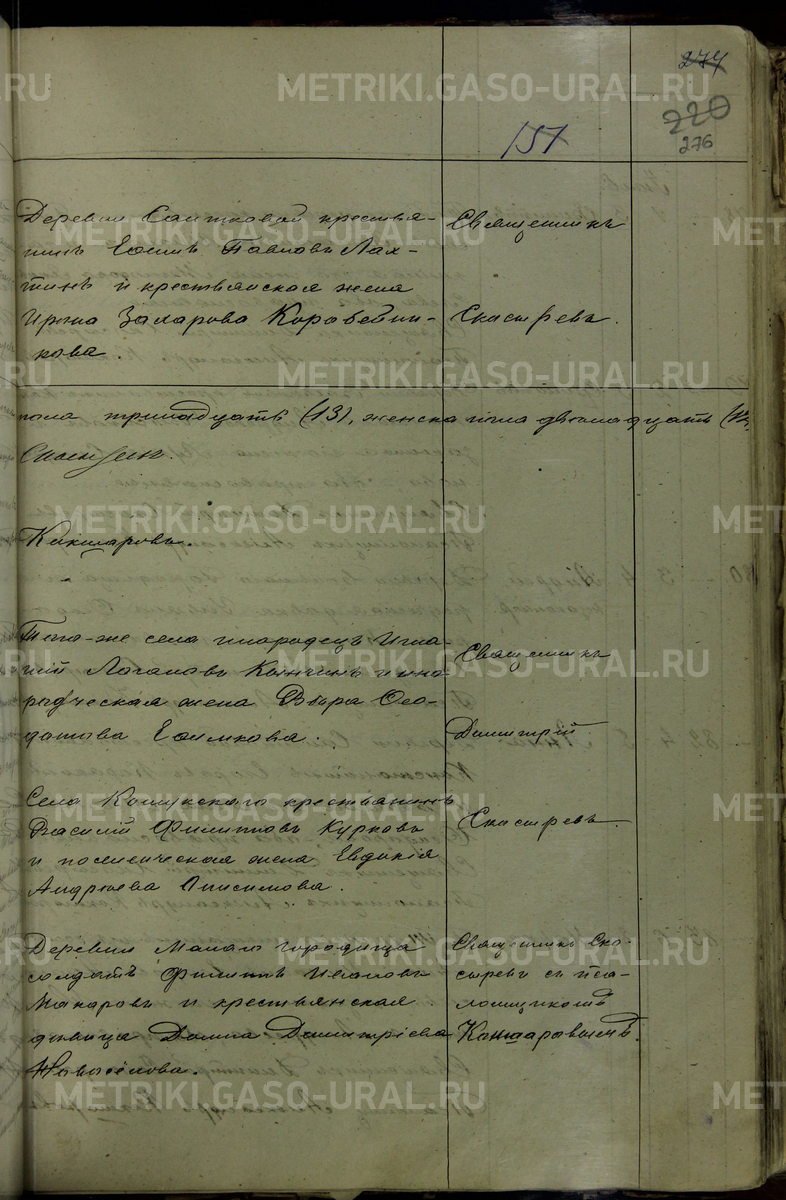 274
220
151
276
Деревни Саитковой крестья-
нинъ Евсимъ Павловъ Лах-
тинъ и крестьянская жена
Ирина Захарова Коровейни-
кова.
Священникъ
Скосыревъ.
пола тринадцать (13), женска пола двенадцать (12)
Кикшаровъ.
Того-же села инородецъ Игна-
тій Логановъ Кынчинъ и ино-
родческая жена Вѣра Ѳео-
дотова Еаимкова.
Священникъ
Димитрій
Скосыревъ.
Села Кошукскаго крестьянинъ
Василій Филипповъ Курковъ
и поселенческая жена Евдокія
Андреева Анисимова.
Деревни Малаго городища
солдатъ Филиппъ Ивановъ
Макаровъ и крестьянская
дѣвица Домна Димитріева
Новосёлова.
Священникъ Ско-
сыревъ съ Пса-
ломщикомъ
METRIKI.GASO-URAL.RU